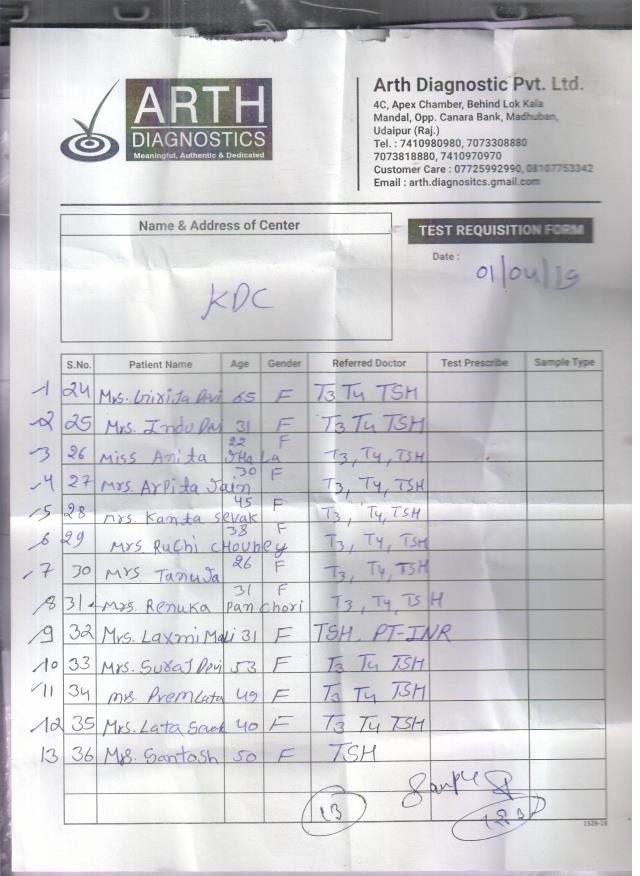 ARTH
DIAGNOSTICS
Meaningful, Authentic & Dedicated
Arth Diagnostic Pvt. Ltd.
4C, Apex Chamber, Behind Lok Kala
Mandal, Opp. Canara Bank, Madhuban,
Udaipur (Raj.)
Tel. : 7410980980, 7073308880
7073818880, 7410970970
Customer Care : 07725992990, 08107753342
Email : arth.diagnositcs.gmail.com
Name & Address of Center
KDC
TEST REQUISITION FORM
Date : 01/04/19
S.No. Patient Name Age Gender Referred Doctor Test Prescribe Sample Type
1 24 Mrs. Devi 65 F T3 T4 TSH
2 25 Mrs. Indu Devi 31 F T3 T4 TSH
3 26 Miss Anita Jhala 22 F T3, T4, TSH
4 27 Mrs. Arpita Jain 30 F T3, T4, TSH
5 28 Mrs. Kanta Sevak 45 F T3, T4, TSH
6 29 Mrs Ruchi Choubey 38 F T3, T4, TSH
7 30 Mrs. Tanuja 26 F T3, T4, TSH
8 31 Mrs. Renuka Panchori 31 F T3, T4, TSH
9 32 Mrs. Laxmi Mali 31 F TSH, PT-INR
10 33 Mrs. Suraj Devi 53 F T3 T4 TSH
11 34 Mrs. Premlata 49 F T3 T4 TSH
12 35 Mrs. Lata 40 F T3 T4 TSH
13 36 Mrs. Santosh 50 F TSH
13
Sample
1526-18